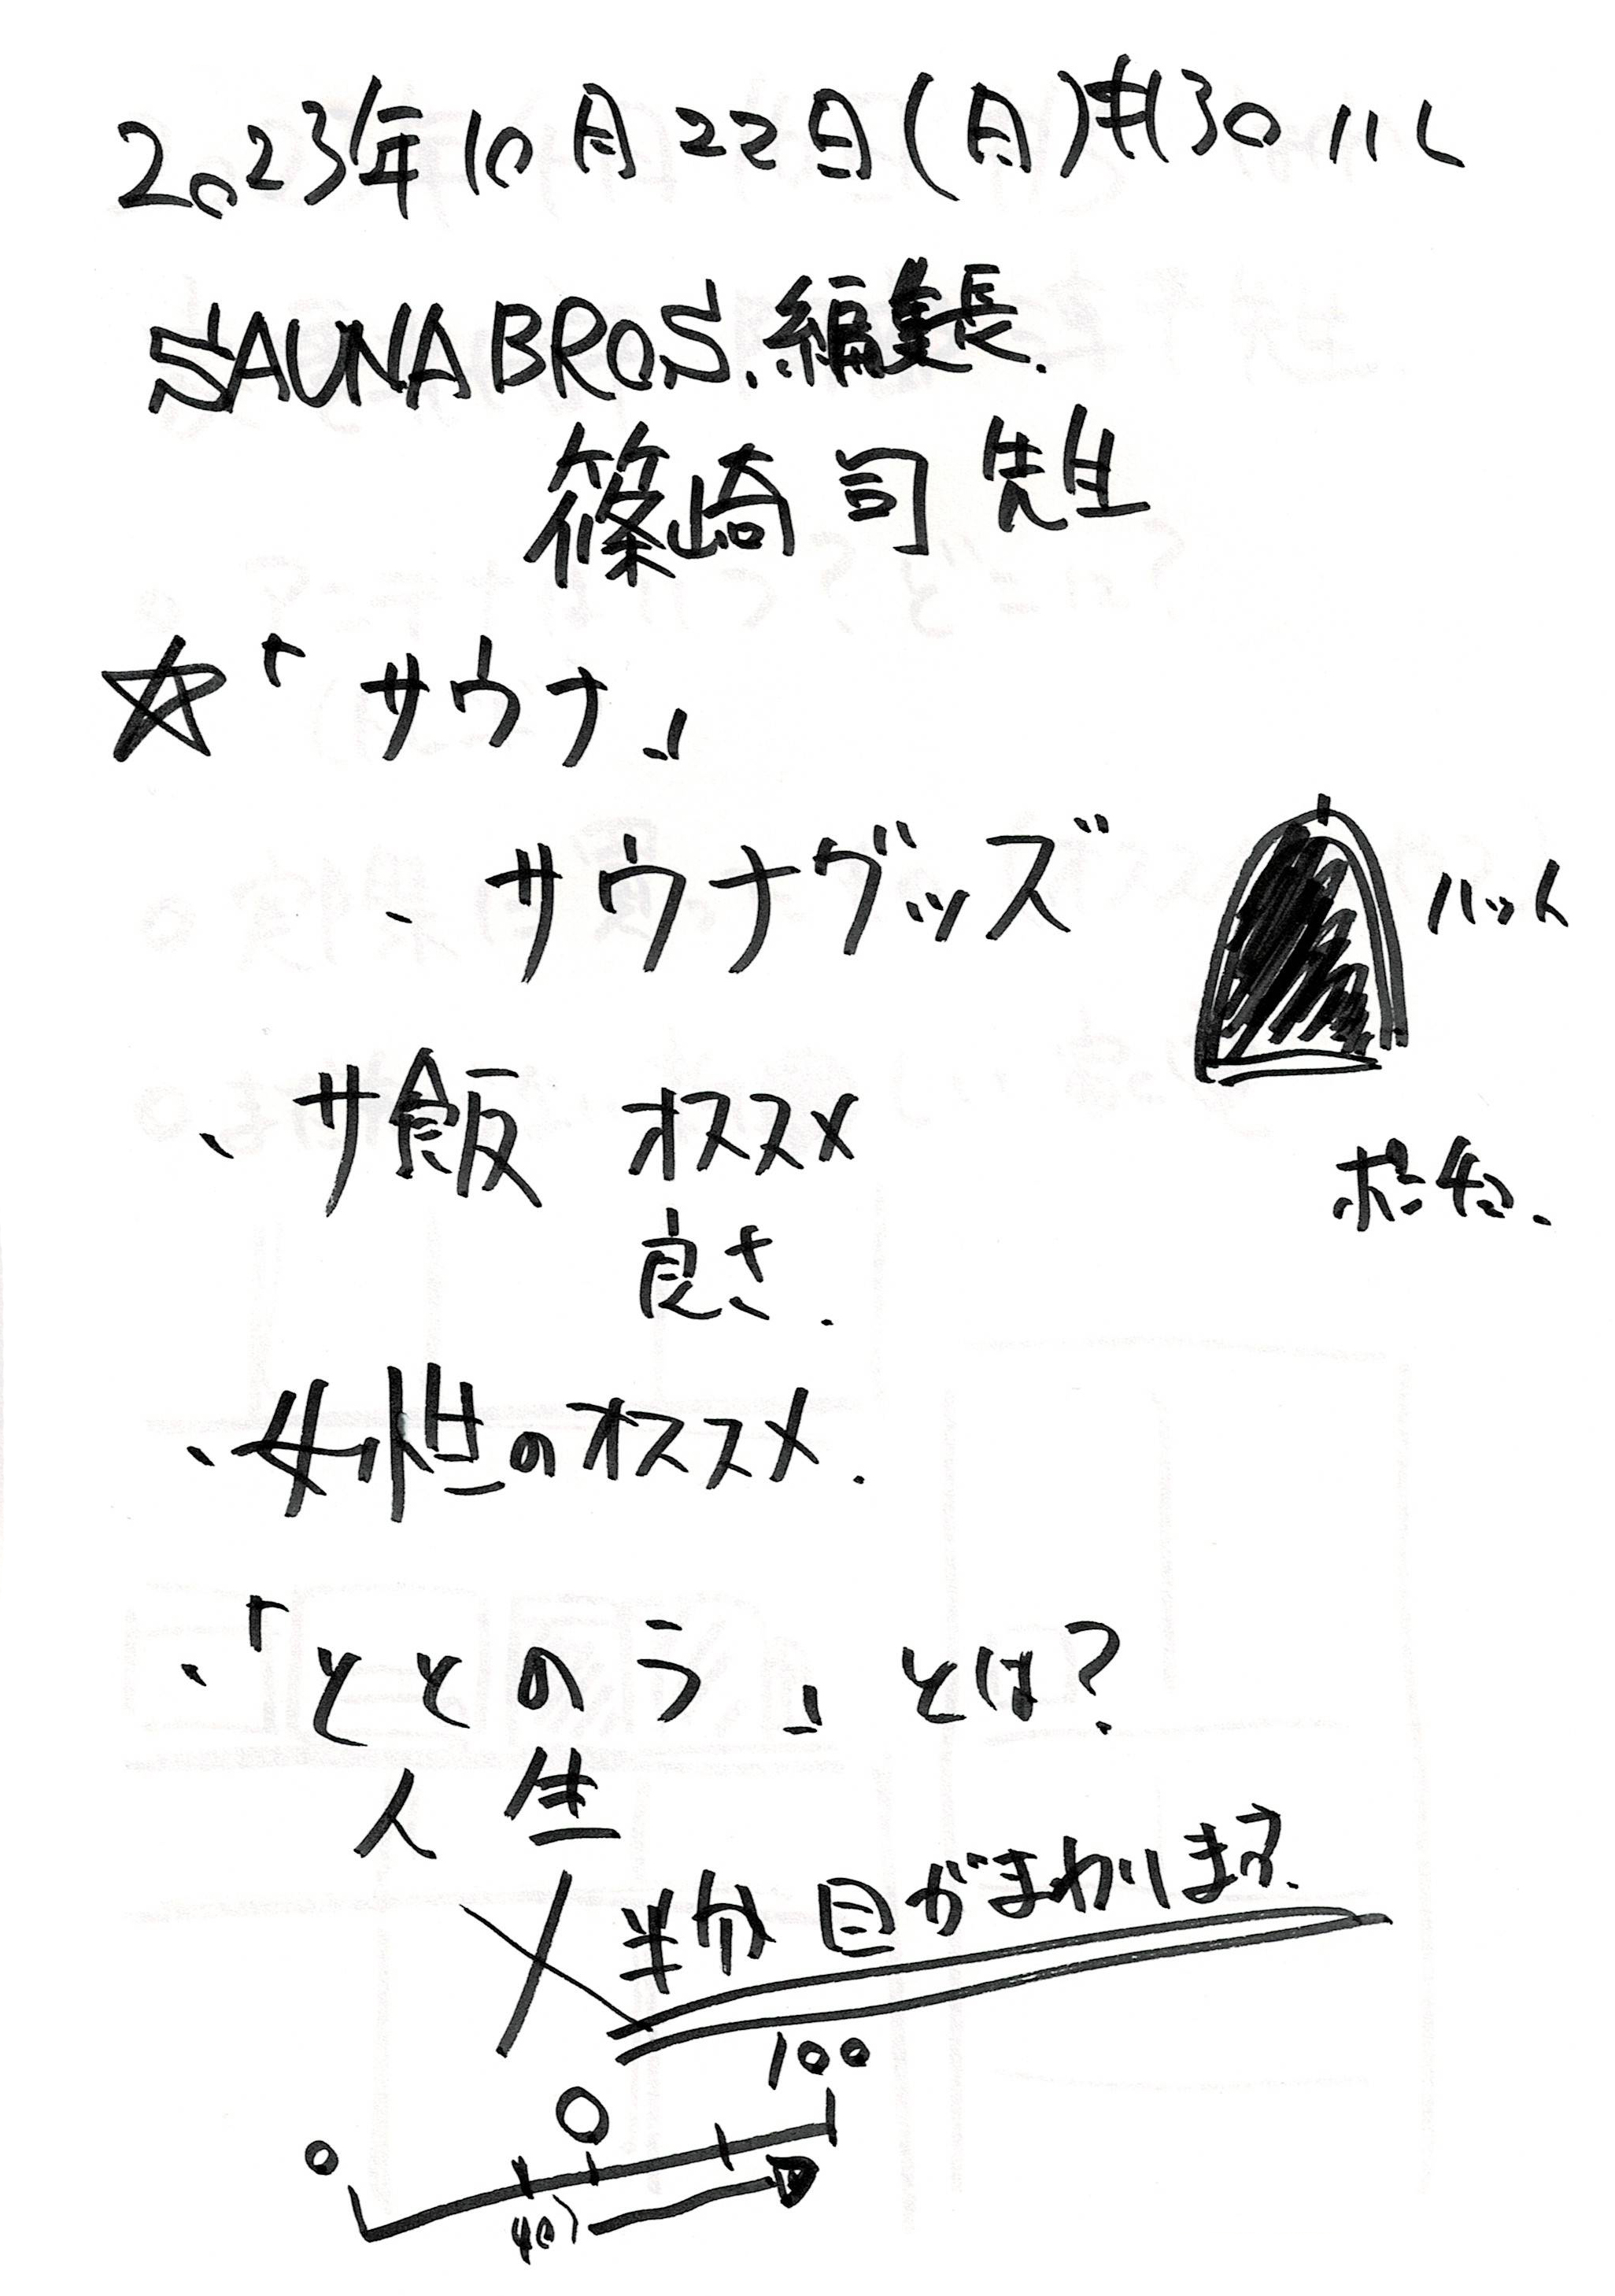 2023年10月22日(日)#130
SAUNA BROS.編集長.
篠崎 司 先生
☆「サウナ」
・サウナグッズ
ハット
・サ飯 オススメ
良さ.
・女性のオススメ.
・「ととのう」とは?
人生
半分 目がまわります.
100
0
40